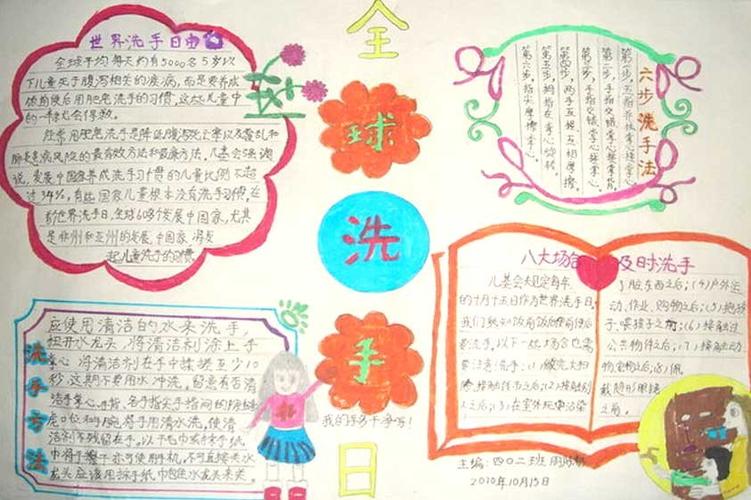 世界洗手日由来
全球平均每天约有5000名5岁以
下儿童死于腹泻相关的疾病,而是要养成
饭前便后用肥皂洗手的习惯,这九儿童中
的一半就会得救。
经常用肥皂洗手是降低腹泻死亡率以及霍乱和
肺炎患病风险的最有效方法和最廉方法。儿基会强调
说,发展中国家养成洗手习惯的儿童比例不超
过34%,有些国家儿童根本没有洗手习惯,在
世界洗手日,全球60多个发展中国家,尤其
是非洲和亚洲的发展中国家将发
起儿童洗手的习惯
全
球
洗
手
日
我的手多干净呀!
六步洗手法
第二步,手指交错掌心搓掌背,
第三步,手指交错掌心搓掌心,
第四步,两手互握互相摩擦,
第五步,拇指在掌心旋转,
第六步,指尖摩擦掌心。
洗手方法
应使用清洁的水来洗手,
扭开水龙头,将清洁剂涂上手
掌心 将清洁剂在手中搓揉至少10
秒,这期不要用水冲洗,留意有否清
洁手掌心、手指、各手指尖手指间的
虎口位和手腕 将手用清水洗,使清
洁剂不残留在手,以干毛巾或纸手纸
巾将手擦干亦可使用干手机,不可直接关水
龙头应该用抹手纸巾包住水龙头来关。
八大场合 及时洗手
儿基会决定每年
的十月十五日作为世界洗手日,
我们都知饭前饭后便前便后
要洗手,以下一些场合也需
要注意洗手:(1)做完大扫
除接触传布之后;(2)接触别
人之后;(3)在室外玩耍沾染
了脏东西之后;(4)户外运
动、作业、购物之后;(5)抱孩
子、喂孩子之前;(6)接触过
公共物件之后;(7)接触动
物宠物之后;(8)佩
戴隐形眼镜
之前。
主编:四〇二班
2010年10月15日